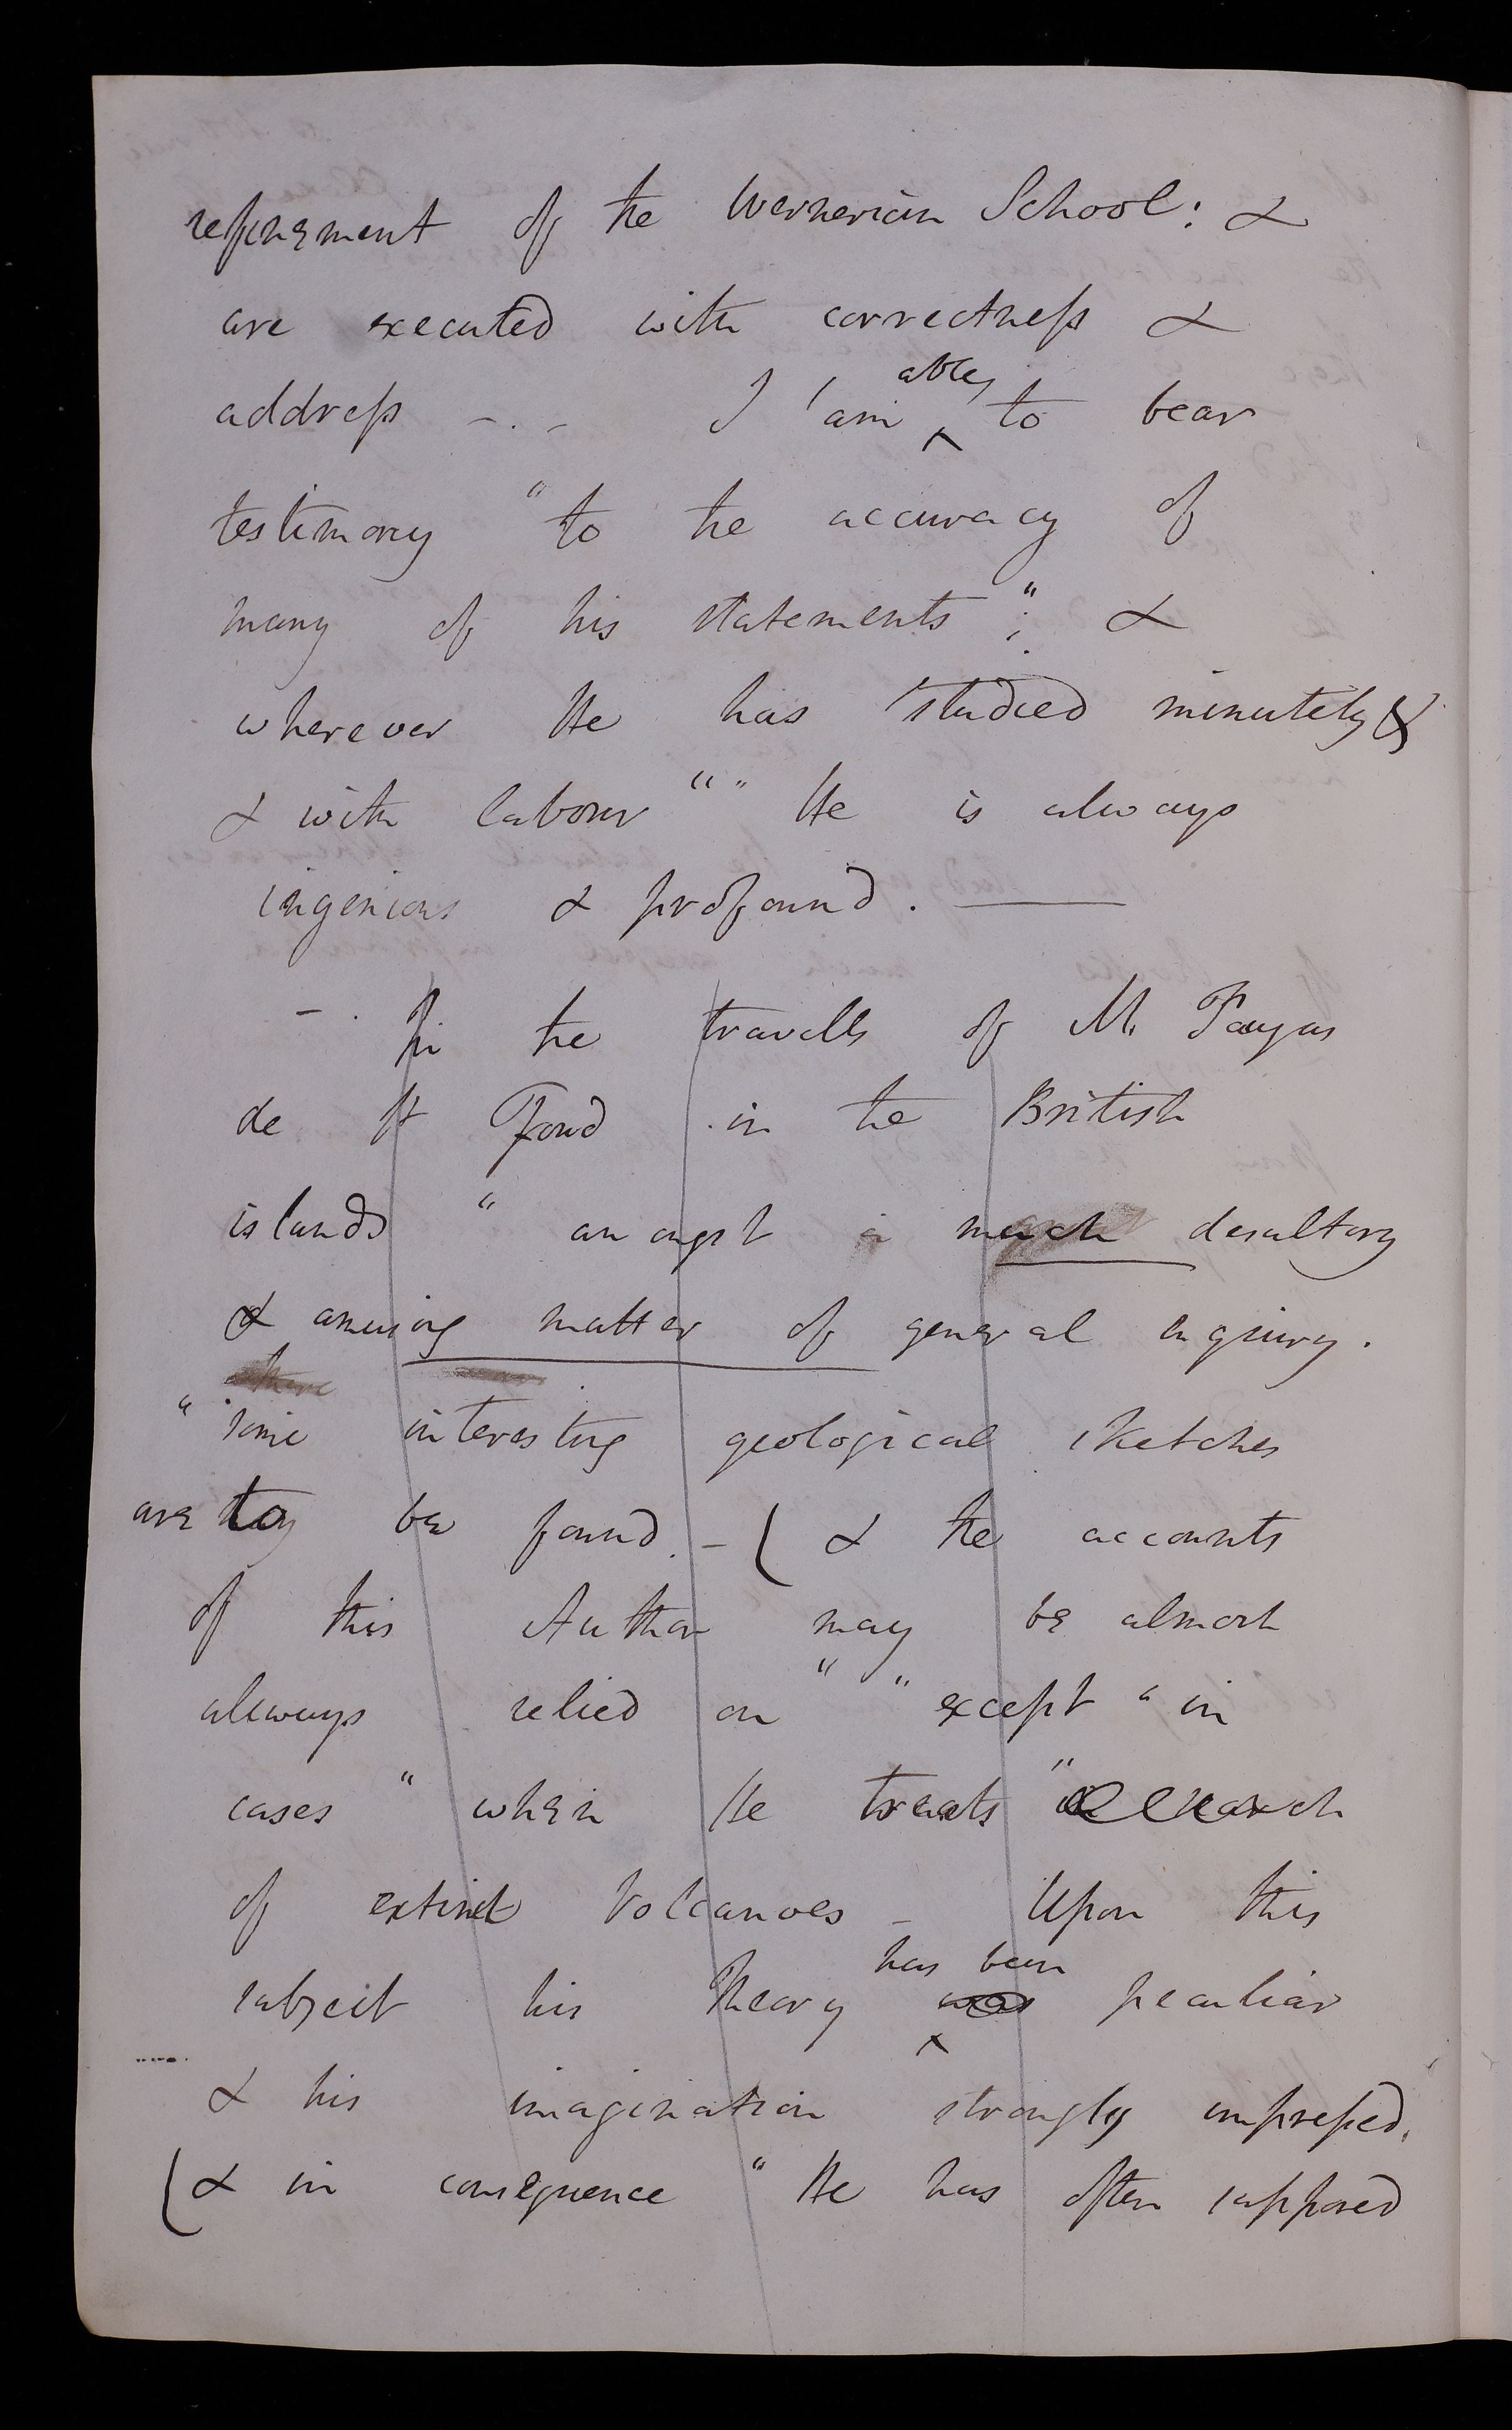 refinement of the Wernerian School: &
are executed with correctness &
address - . - I am able to bear
testimony " to the accuracy of
many of his statements "; &
wherever He has studied minutely &
& with labour " " He is always
ingenious & profound. —
- . In the travells of M. Faujas
de St Fond in the British
islands " amongst much desultory
& amusing matter of general enquiry.
" some interesting geological sketches
are to be found. - ( & the accounts
of this Author may be almost
always relied on " " except " in
cases " when He treats "
of extinct Volcanoes - Upon this
subject his Theory was has been peculiar
& his imagination strongly impressed.
( & in consequence " He has often supposed